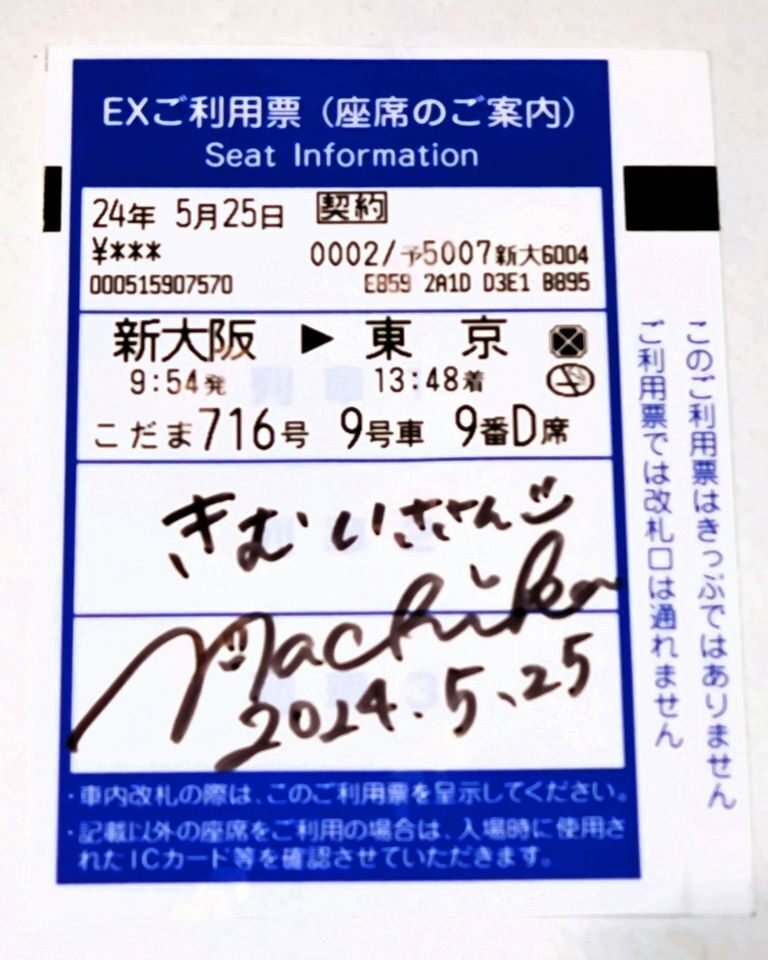 EXご利用票（座席のご案内）
Seat Information
24年 5月25日 契約
¥*** 0002/予5007新大6004
000515907570 E859 2A1D D3E1 B895
新大阪 ▶ 東 京
9:54発 13:48着
こだま716号 9号車 9番D席
きむいささん
Machiko
2024.5.25
・車内改札の際は、このご利用票を呈示してください。
・記載以外の座席をご利用の場合は、入場時に使用さ
れたICカード等を確認させていただきます。
このご利用票はきっぷではありません
ご利用票では改札口は通れません